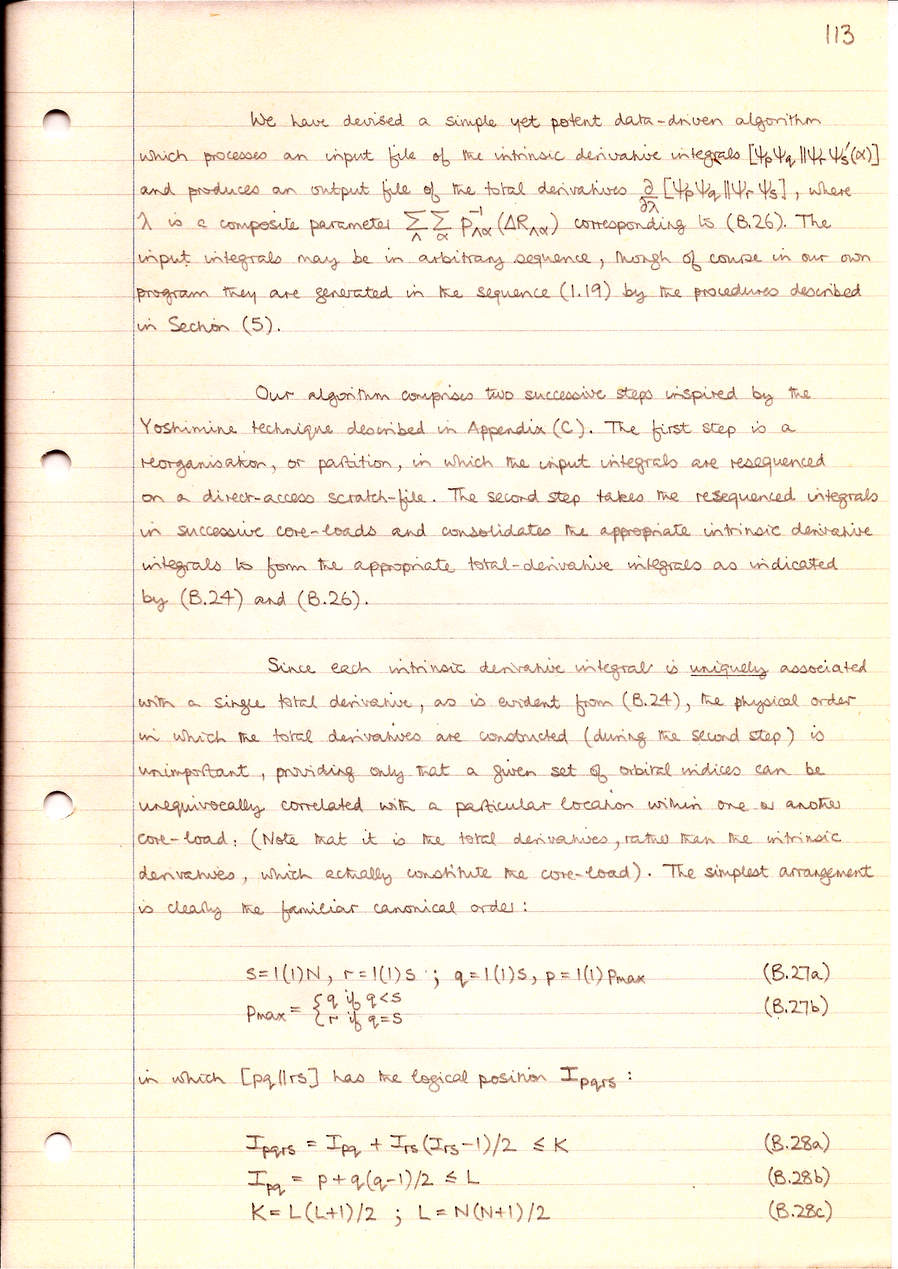 113
We have devised a simple yet potent data-driven algorithm
which processes an input file of the intrinsic derivative integrals [ΨpΨq‖ΨrΨs′(α)]
and produces an output file of the total derivatives ∂/∂λ [ΨpΨq‖ΨrΨs], where
λ is a composite parameter ∑Λ ∑α p⁻¹Λα (ΔRΛα) corresponding to (B.26). The
input integrals may be in arbitrary sequence, though of course in our own
program they are generated in the sequence (1.19) by the procedures described
in Section (5).
Our algorithm comprises two successive steps inspired by the
Yoshimine technique described in Appendix (C). The first step is a
reorganisation, or partition, in which the input integrals are resequenced
on a direct-access scratch-file. The second step takes the resequenced integrals
in successive core-loads and consolidates the appropriate intrinsic derivative
integrals to form the appropriate total-derivative integrals as indicated
by (B.24) and (B.26).
Since each intrinsic derivative integral is uniquely associated
with a single total derivative, as is evident from (B.24), the physical order
in which the total derivatives are constructed (during the second step) is
unimportant, providing only that a given set of orbital indices can be
unequivocally correlated with a particular location within one or another
core-load. (Note that it is the total derivatives, rather than the intrinsic
derivatives, which actually constitute the core-load). The simplest arrangement
is clearly the familiar canonical order:
s=1(1)N, r=1(1)s ; q=1(1)s, p=1(1)pmax (B.27a)
pmax = { q if q<s
{ r if q=s (B.27b)
in which [pq‖rs] has the logical position Ipqrs :
Ipqrs = Ipq + Irs(Irs-1)/2 ≤ K (B.28a)
Ipq = p+q(q-1)/2 ≤ L (B.28b)
K=L(L+1)/2 ; L=N(N+1)/2 (B.28c)